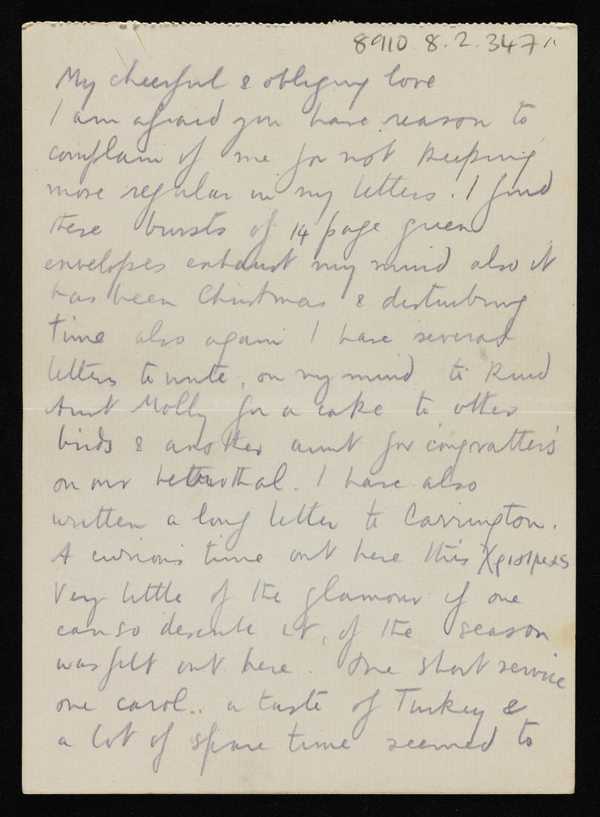 8910.8.2.347
My cheerful & obliging love
I am afraid you have reason to
complain of me for not keeping
more regular in my letters. I find
these bursts of 14 page green
envelopes exhaust my mind also it
has been Christmas & disturbing
time also again I have several
letters to write, on my mind to kind
Aunt Molly for a cake to other
birds & another aunt for congratters
on our betrothal. I have also
written a long letter to Carrington.
A curious time out here this
Very little of the glamour if one
can so describe it, of the season
was felt out here. One short service
one carol.. a taste of Turkey &
a lot of spare time seemed to